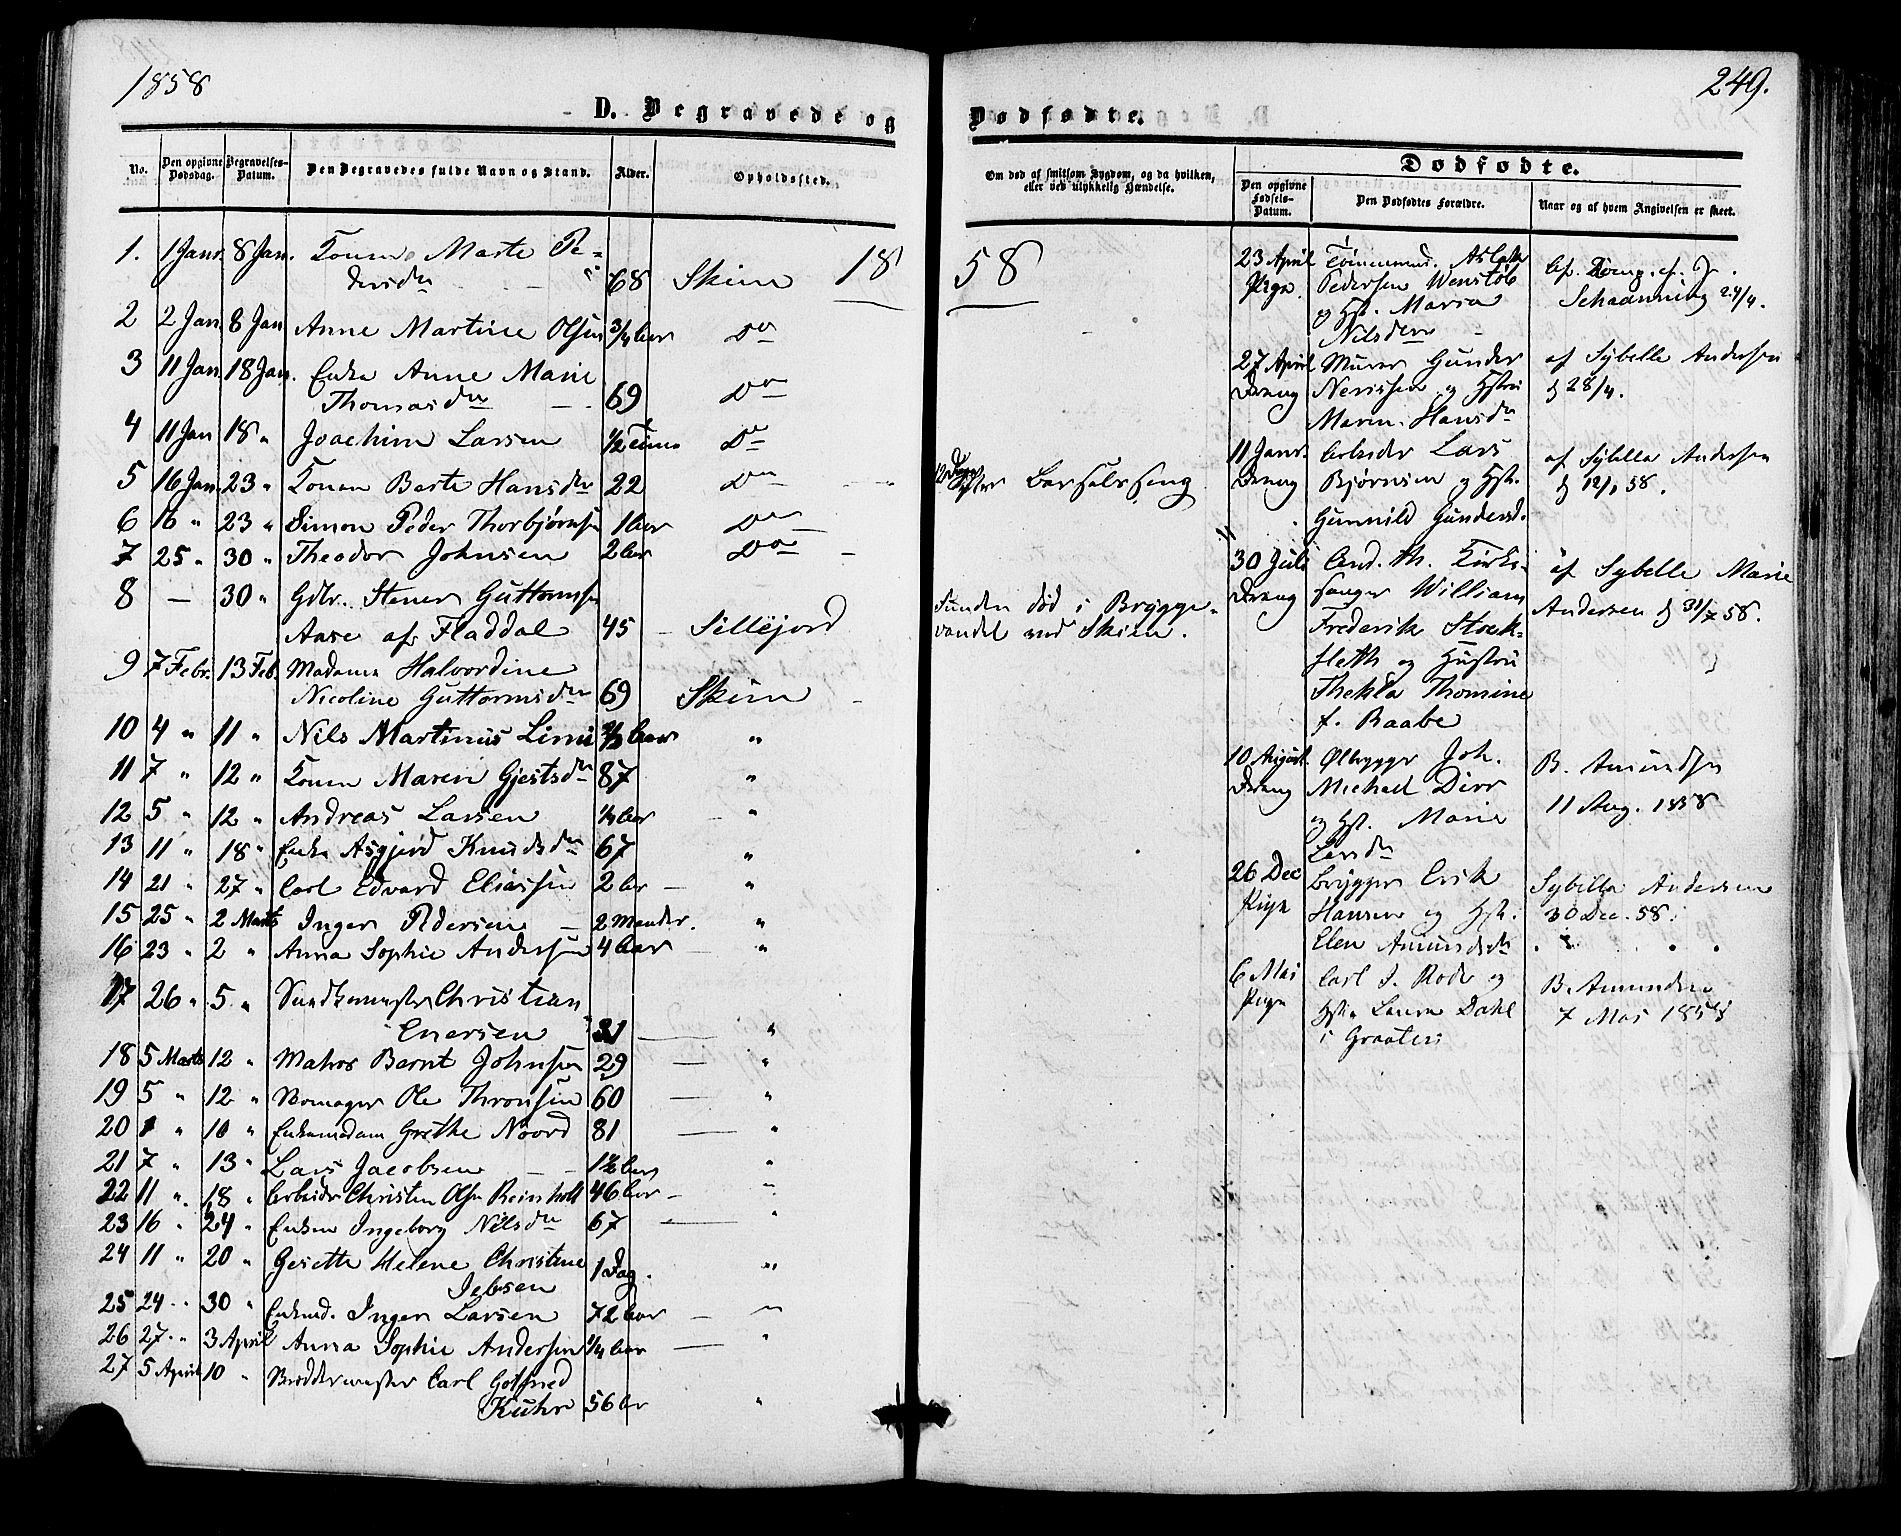 1858
249.
D. Begravede og
Dødfødte.
No.
Den opgivne Dødsdag.
Begravelses-Datum.
Den Begravedes fulde Navn og Stand.
Alder.
Opholdssted.
Om død af smitsom Sygdom, og da hvilken,
eller ved ulykkelig Hændelse.
Dødfødte.
Den opgivne Fødsels-Datum.
Den Dødfødtes Forældre.
Naar og af hvem Angivelsen er skeet.
18 58
1. 1 Janr. 8 Jan. Konen Marte Pe-
dersdtr 68 Skien
2 2 Jan. 8 Jan Anne Martine Olsen 3/4 Aar Do
3 11 Jan. 18 Jan. Enke Anne Marie
Thomasdtr 69 Do
4 11 Jan 18 " Joachim Larsen 1/2 Time Do
5 16 Jan. 23 " Konen Berte Hansdtr 22 Do
12 Dage efter Barselseng
6 16 " 23 " Simon Peder Thorbjørnsen 1 Aar Do
7 25 " 30 " Theodor Johnsen 2 Aar Do
8 — 30 " Gdbr. Stener Guttormsen
Aase af Fladdal 45 Sillejord
Funden død i Brygge-
vandet ved Skien.
9 7 Febr. 13 Feb. Madame Halvordine
Nicoline Guttormsdtr 69 Skien
10 4 " 11 " Nils Martinus Limi 2/3 Aar "
11 7 " 12 " Konen Maren Gjestsdtr 87 "
12 5 " 12 " Andreas Larsen Aar "
13 11 " 18 " Enke Asgjerd Knudsdtr 67 "
14 21 " 27 " Carl Edvard Eliassen 2 Ar "
15 25 " 2 Marts Inger Pedersen 2 Maaneder. "
16 23 " 2 " Anna Sophie Andersen 4 Aar "
17 26 " 5 " Christian
Enersen 31 "
18 5 Marts 12 " Matros Bernt Johnsen 29 "
19 5 " 12 " Ole Thronsen 60 "
20 1 " 10 " Enkemadam Grethe Noord 81 "
21 7 " 13 " Lars Jacobsen 1 1/2 Aar "
22 11 " 18 " Arbeider Christen Olsen Reinholt 46 Aar "
23 16 " 24 " Enken Ingeborg Nilsdtr 67 "
24 11 " 20 " Gesette Helene Christine
Jebsen 1 Dag. "
25 24 " 30 " Enkmd. Inger Larsen 72 Aar "
26 27 " 3 April Anna Sophie Andersen 1/4 Aar "
27 5 April 10 " Carl Gotfried
Kuhr 56 Ar "
23 April Pige Tømmermd. Aslak
Pedersen Wenstøb
og Hst. Maria
Nilsdtr
Af
Schaanning 24/4.
27 April Dreng Murer Gunder
Nerissen og Hstru
Maren Hansdtr
af Sybelle Andersen
d 28/4.
11 Janr. Dreng Arbeider Lars
Bjørnsen og Hst.
Gunnild Gundersd.
af Sybelle Andersen
d 12/1 58.
30 Juli Dreng Cand. th. Kirke-
sanger William
Frederik Stock-
fleth og Hustru
Thekla Thomine
f. Raabe
af Sybelle Marie
Andersen d 31/7 58.
10 August Dreng Ølbrygger Joh.
Michael Dirr
og Hst. Marie
Larsdtr
B. Amundsen
11 Aug. 1858
26 Dec Pige Brygger Erik
Hansen og Hst.
Elen Amundsdtr
Sybille Andersen
30 Dec. 58.
6 Mai Pige Carl J. Rode og
Hst. Laura Dahl
i Graaten
B. Amundsen
7 Mai 1858